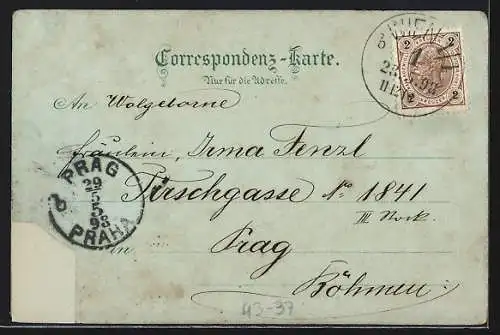 Correspondenz-Karte.
Nur für die Adresse.
WIEN
2 2
2 2
An Wolgeborne
Fräulein, Irma Fenzl
Tirschgasse No 1841
III Stock.
in Prag
Böhmen
PRAG
29
5
5
98
PRAHA
43-37